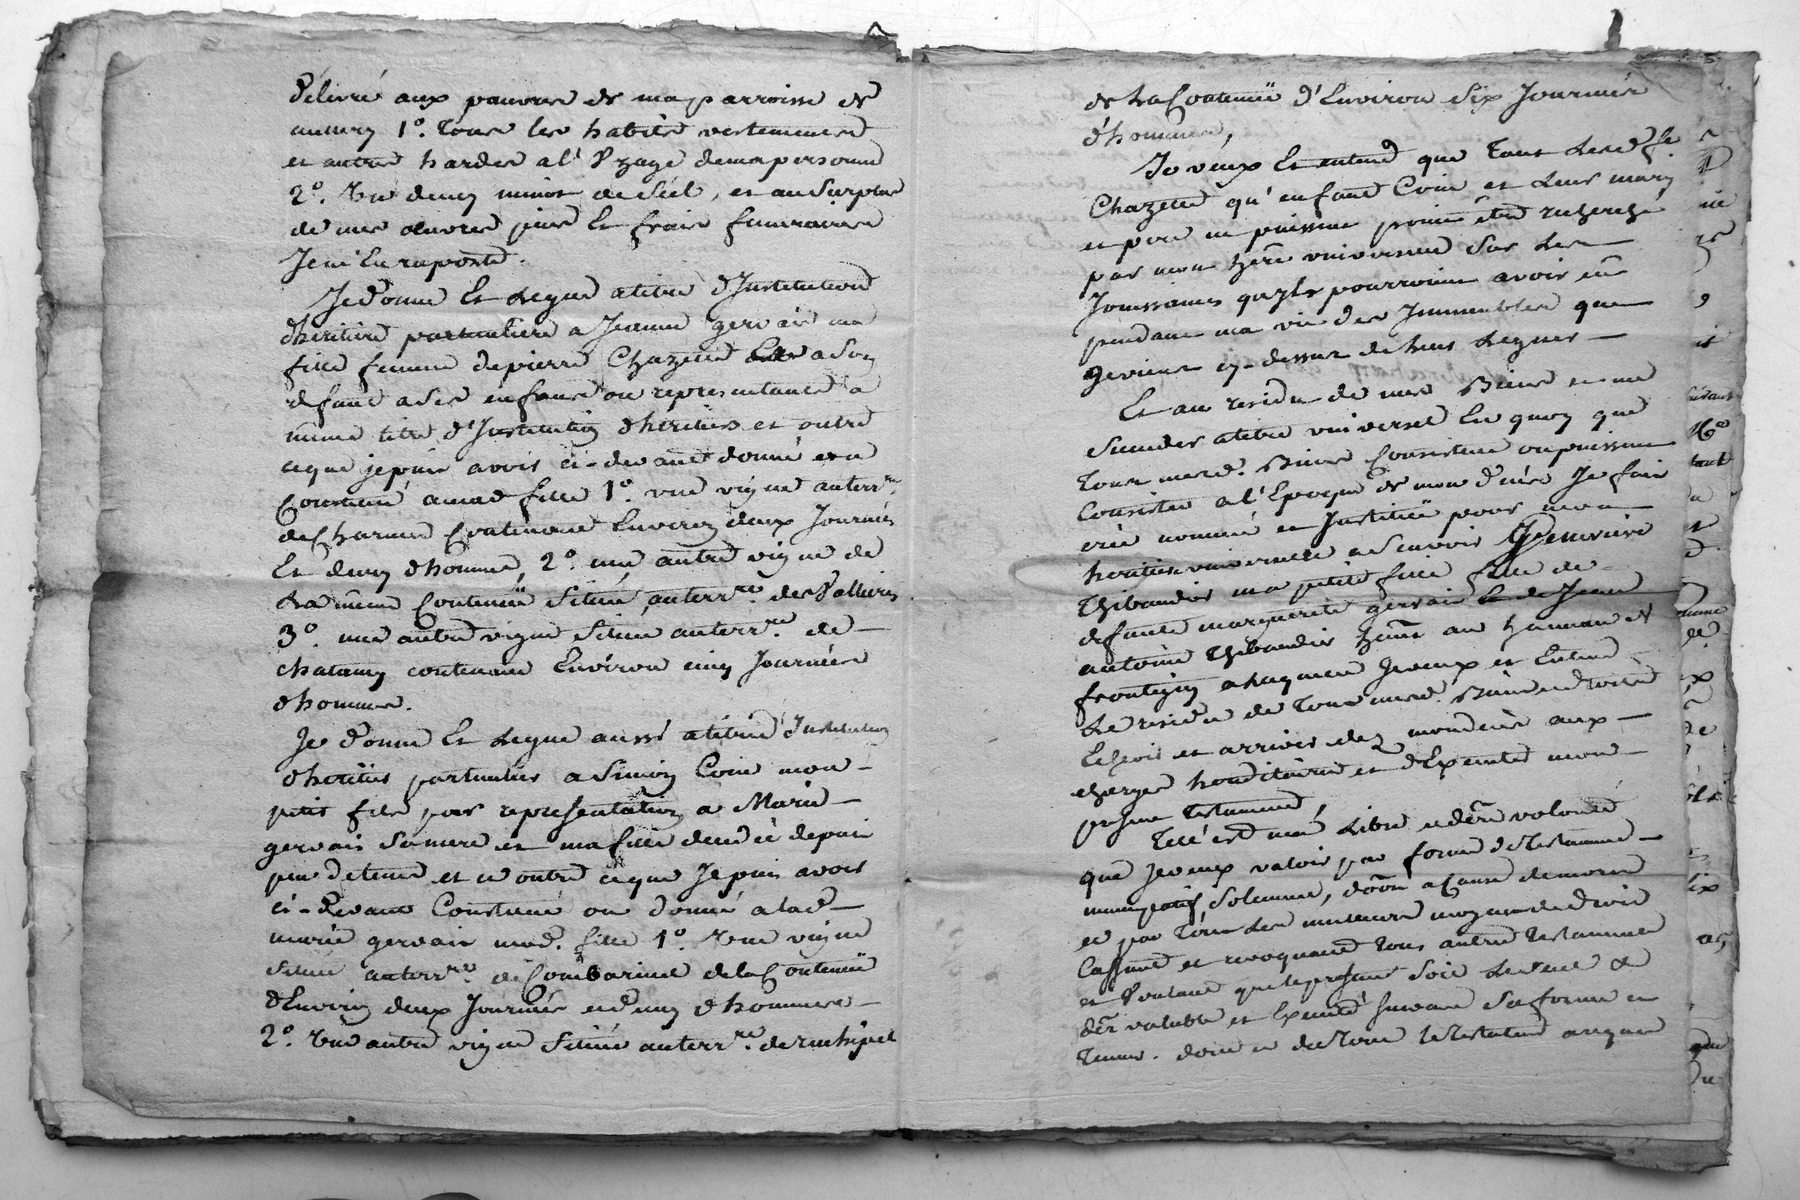 délivré aux pauvres de ma parroisse de
1°. tous les habits vestements
et autres hardes a l'Uzage de ma personne
2°. Un demy minot de Sel, et au Surplus
de mes œuvres pies Et frais funeraires
Je m'En raporte.
Je donne Et Legue a titre d'Institution
d'heritiere particuliere a Jeanne gervais ma
fille femme de pierre Chazette a Son
defaut a Ses enfans ou representans a
même titre d'Institution d'heritiers et outre
ce que je puis avoir ci-devant donné et
Constitué a mad fille 1°. une vigne au terr.re
de Charmes Contenant Environ deux Journées
Et demy d'homme, 2°. une autre vigne de
La même Contenüe Située au terr.re des
3°. une autre vigne Située au terr.re de
contenant Environ cinq Journées
d'hommes.
Je donne Et Legue aussi a titre d'Institution
d'heritier particulier a Simon Coin mon
petit fils par representation a Marie
gervais Sa mere et ma fille decedée depuis
peu de tems et ce outre ce que Je puis avoir
ci-devant Constitué ou donné a lad
marie gervais mad. fille 1°. Une vigne
Située au terr.re de de la Contenüe
d'Environ deux Journées et demy d'hommes
2°. Une autre vigne Située au terr.re de
de La Contenüe d'Environ Six Journées
d'hommes,
Je veux Et entend que tant Lesd
Chazette qu'enfans Coin et Leur mary
et pere ne puissent point être recherché
par mon her̃e universelle Sur Les
Jouissances qu'ils pourroient avoir eû
pendant ma vie des Immeubles que
Je viens cy-dessus de Leur Leguer
Et au residu de mes Biens
a titre universel En quoy que
tous mesd. Biens Consistent ou puissent
Consister a l'Epoque de mon déces Je fais
crée nommé et Institüe pour mon
heritiere universelle a Scavoir Genevieve
Thibaudier ma petite fille fille de
defunte marguerite gervais
antoine Thibaudier au hameau de
frontigny a laquelle Je veux et Entend
Le residu de tous mesd. Biens et droits
Echeoir et arriver dez mon deces aux
charges hereditaires et d'Executer mon
present testament,
Tele est ma Libre et derr̃e volonté
que Je veux valoir par forme de testament
nuncupatif Solemnel, don̂on a Cause de mort
et par tous Les meilleurs moyens de droit
Cassant et revoquant tous autres testaments
et Voulant que le present Soit Le Seul &
der̃ valable et Executé Suivant Sa forme et
teneur. dont et du tout le testateur